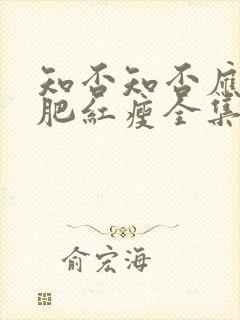 知否知否应
肥紅瘦全集
俞宏海